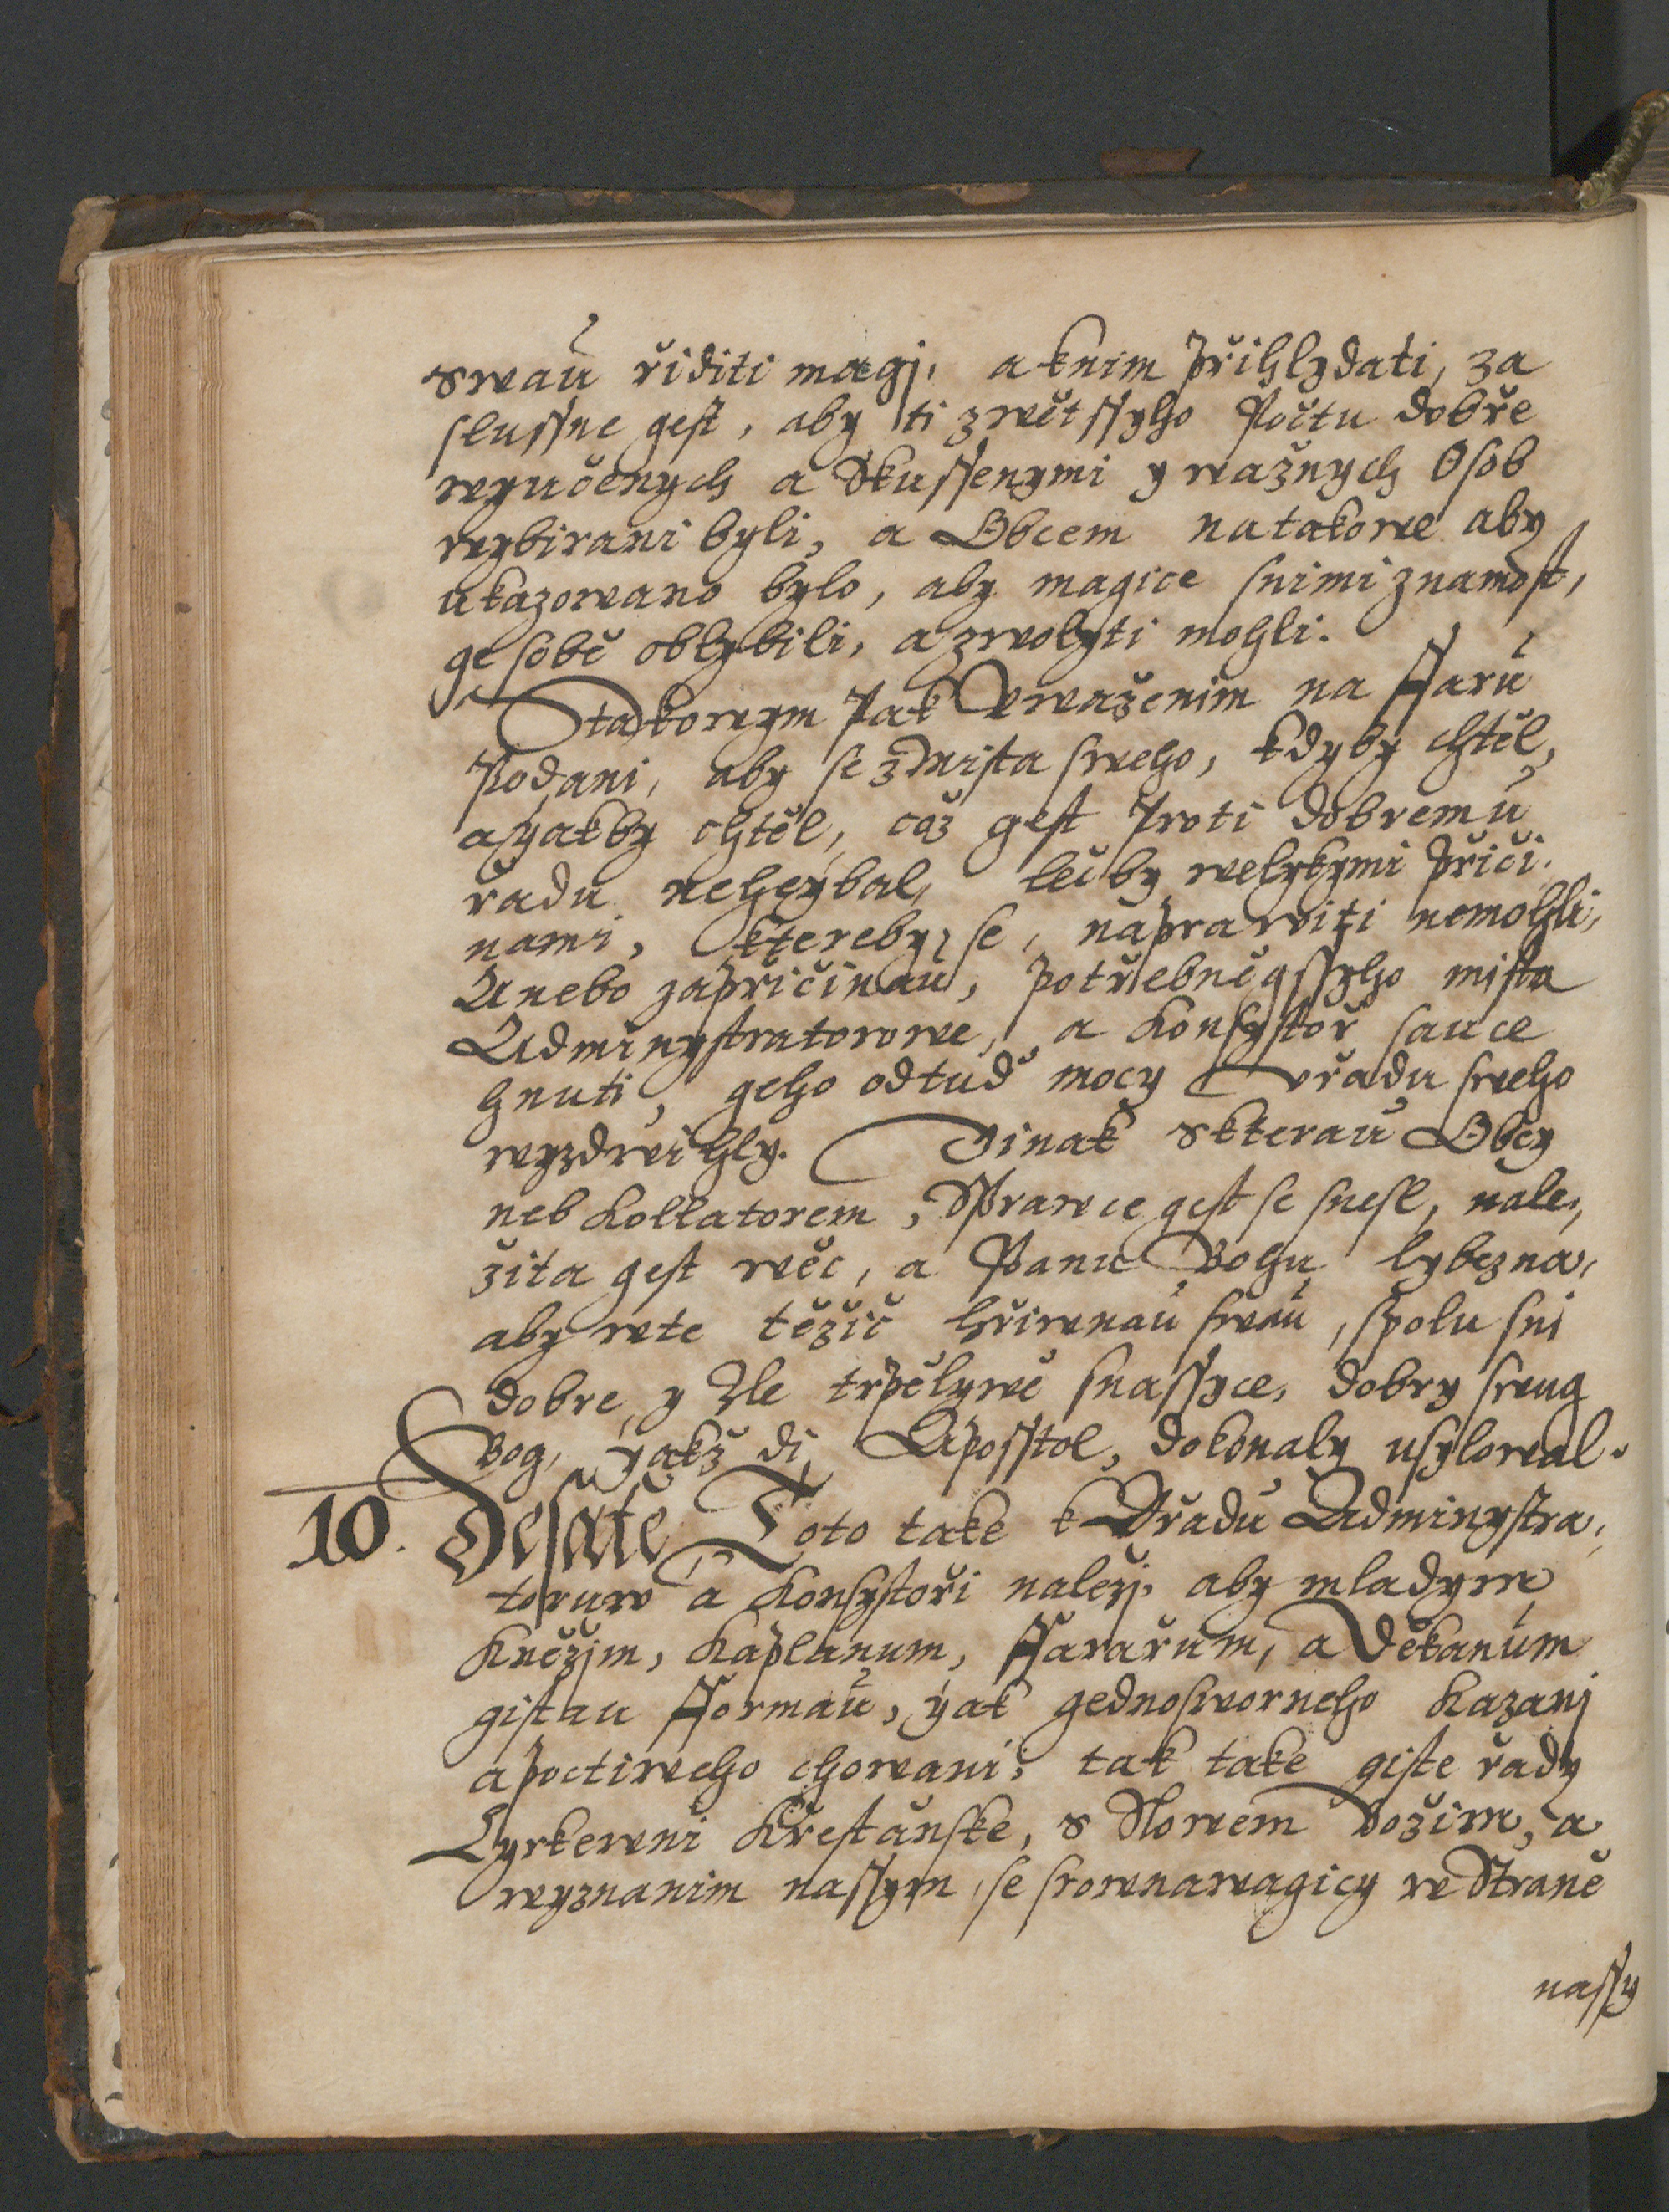 swau řiditi magj, a knim přihlydati, za
slussne gest, aby ti zwětssyho Počtu dobře
wyučenych a Skussenymi y wažnych Osob
wybirani byli, a Obcem natakowe aby
ukazowano bylo, aby magice snimi znamost,
ge sobě oblybili, a zwolyti mohli.
Stakowym pak Uważenim na Ffaru
Podani, aby se z Mista sweho, kdyby chtěl,
a yakby chtěl, coż gest proti dobremu
řadu neheybal, lečby welykymi Přiči,
nami, ktereby se, naprawiti nemohli,
Anebo zapřičinau, potřebněgssyho mista
Adminystratorowe, a Konsystoř sauce
hnuti, geho odtud mocy Vřadu sweho
wyzdwihly. Jinak skterau Obcy
neb Kollatorem, Sprawce gest se snesl, nale,
žita gest wěc, a Panu Bohu lybezna,
aby wte těžič hřiwnau swau, spolu sni
dobre, y Zle trpělywě snassyce, dobry swug
Bog, yakž di Aposstol, dokonaly usylowal.
10. Desáté Toto také k Vřadu Adminystra,
toruw a Konsystoři naleži, aby mladym
Kněžjm, Kaplanum, Ffarařum, a Děkanúm
gistau Fformau, yak gednosworneho Kazanj
a poctiweho chowani, tak také giste řady
Cyrkewni Křestanské, s Slowem Božim, a
wyznanim nassym, se srownawagicy w Straně
nassy